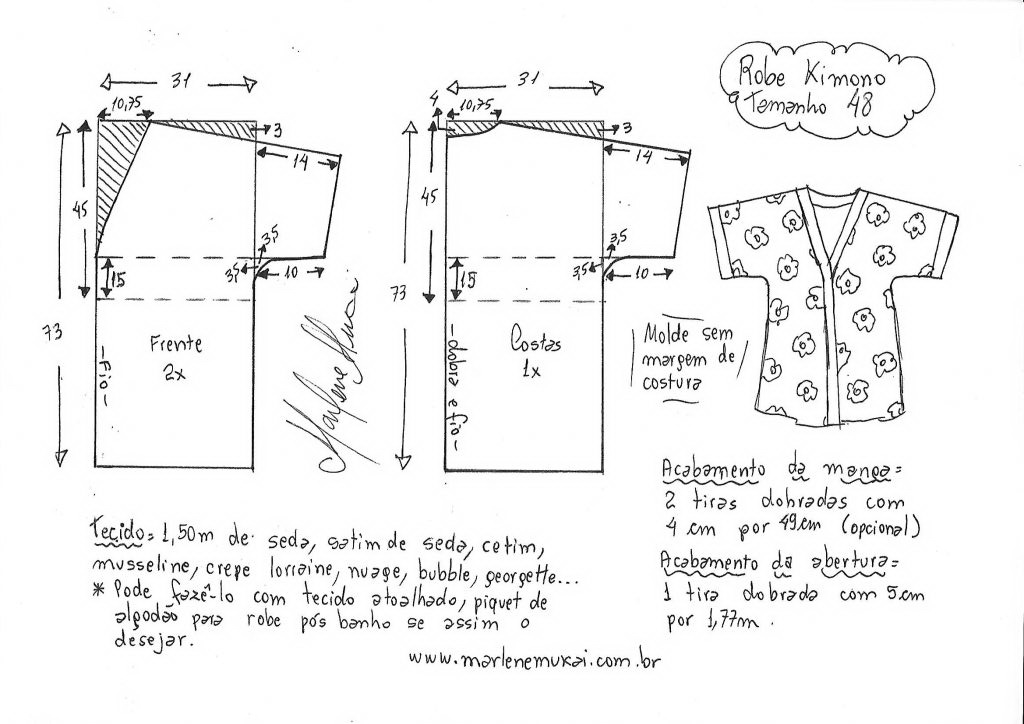 Robe Kimono
Tamanho 48
31
10,75
3
14
45
3,5
3,5
10
15
73
Frente
2x
-Fio-
Marlene Mukai
31
4
10,75
3
14
45
3,5
3,5
10
15
73
Costas
1x
-dobra e fio-
Molde sem
margem de
costura
Acabamento da manga=
2 tiras dobradas com
4 cm por 49cm (opcional)
Acabamento da abertura=
1 tira dobrada com 5cm
por 1,77m.
Tecido= 1,50m de seda, satim de seda, cetim,
musseline, crepe lorraine, nuage, bubble, georgette...
* Pode fazê-lo com tecido atoalhado, piquet de
algodão para robe pós banho se assim o
desejar.
www.marlenemukai.com.br